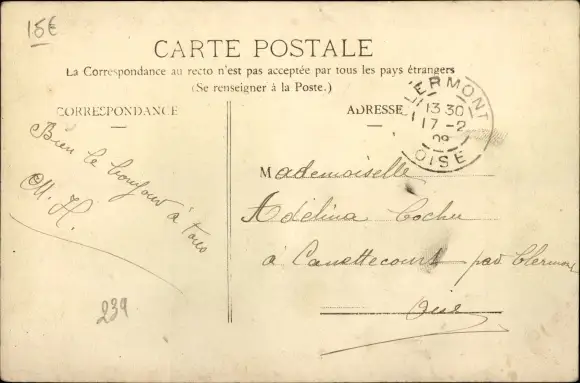 15€
CARTE POSTALE
La Correspondance au recto n'est pas acceptée par tous les pays étrangers
(Se renseigner à la Poste.)
CORRESPONDANCE
ADRESSE
CLERMONT
13 30
17 - 2
09
OISE
Bien le bonjour à tous
M. H.
Mademoiselle
Adélina Cochu
à Cannettecourt par Clermont
Oise
239